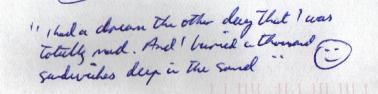 "I had a dream the other day that I was
totally mad. And I buried a thousand
sandwiches deep in the sand"